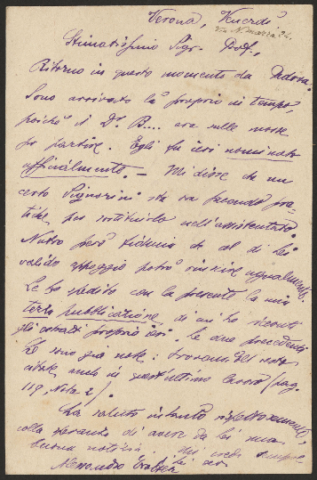 Verona, Venerdì
Via N. Mazza 24.
Stimatissimo Sigr. Prof.,
Ritorno in questo momento da Padova.
Sono arrivato là proprio in tempo,
poiché il Dr. B.... era sulle mosse
per partire. Egli fu ieri nominato
ufficialmente. — Mi disse che un
certo Signorini sta facendo pra-
tiche per sostituirlo nell'assistentato.
Nutro però fiducia che col di Lei
valido appoggio potrò riuscire ugualmente.
Le ho spedito con la presente la mia
terza pubblicazione di cui ho ricevuto
gli estratti proprio ieri. Le due precedenti
Le sono già note: trovansi del resto
citate anche in quest'ultimo lavoro (pag.
119, nota 2).
La saluto intanto rispettosamente,
colla speranza di avere da Lei una
buona notizia. Mi creda sempre
di Lei
Alessandro